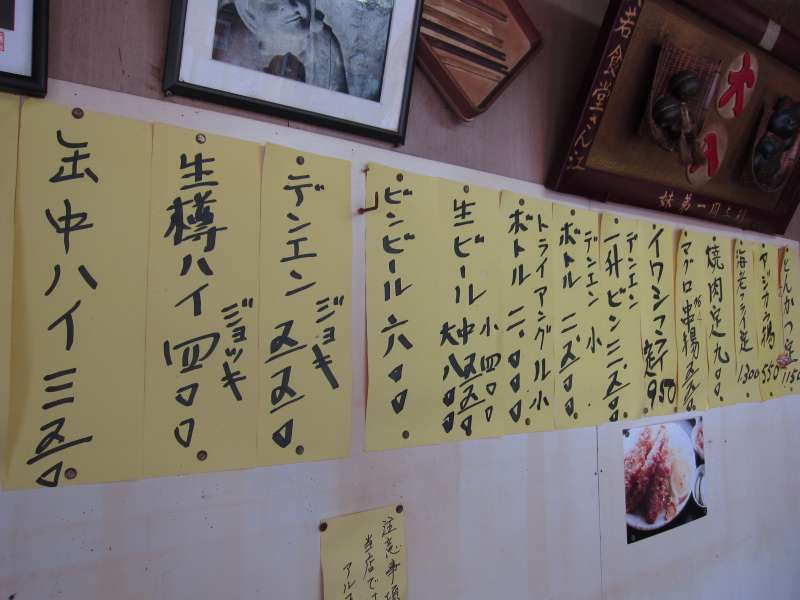 缶中ハイ 三五〇
生樽ハイ ジョッキ 四〇〇
デンエン ジョキ 五五〇
ビンビール 六〇〇
生ビール 小四〇〇
中五五〇
大八〇〇
トライアングル小
ボトル 二、〇〇〇
デンエン 小
ボトル 二、五〇〇
デンエン
一升ビン 三、五〇〇
イワシマ 950
マグロ串揚 五五〇
焼肉定 九〇〇
海老フライ定 1300
アジフライ 550
とんかつ定 1150
若食堂さん江
注意事項
当店で
アル